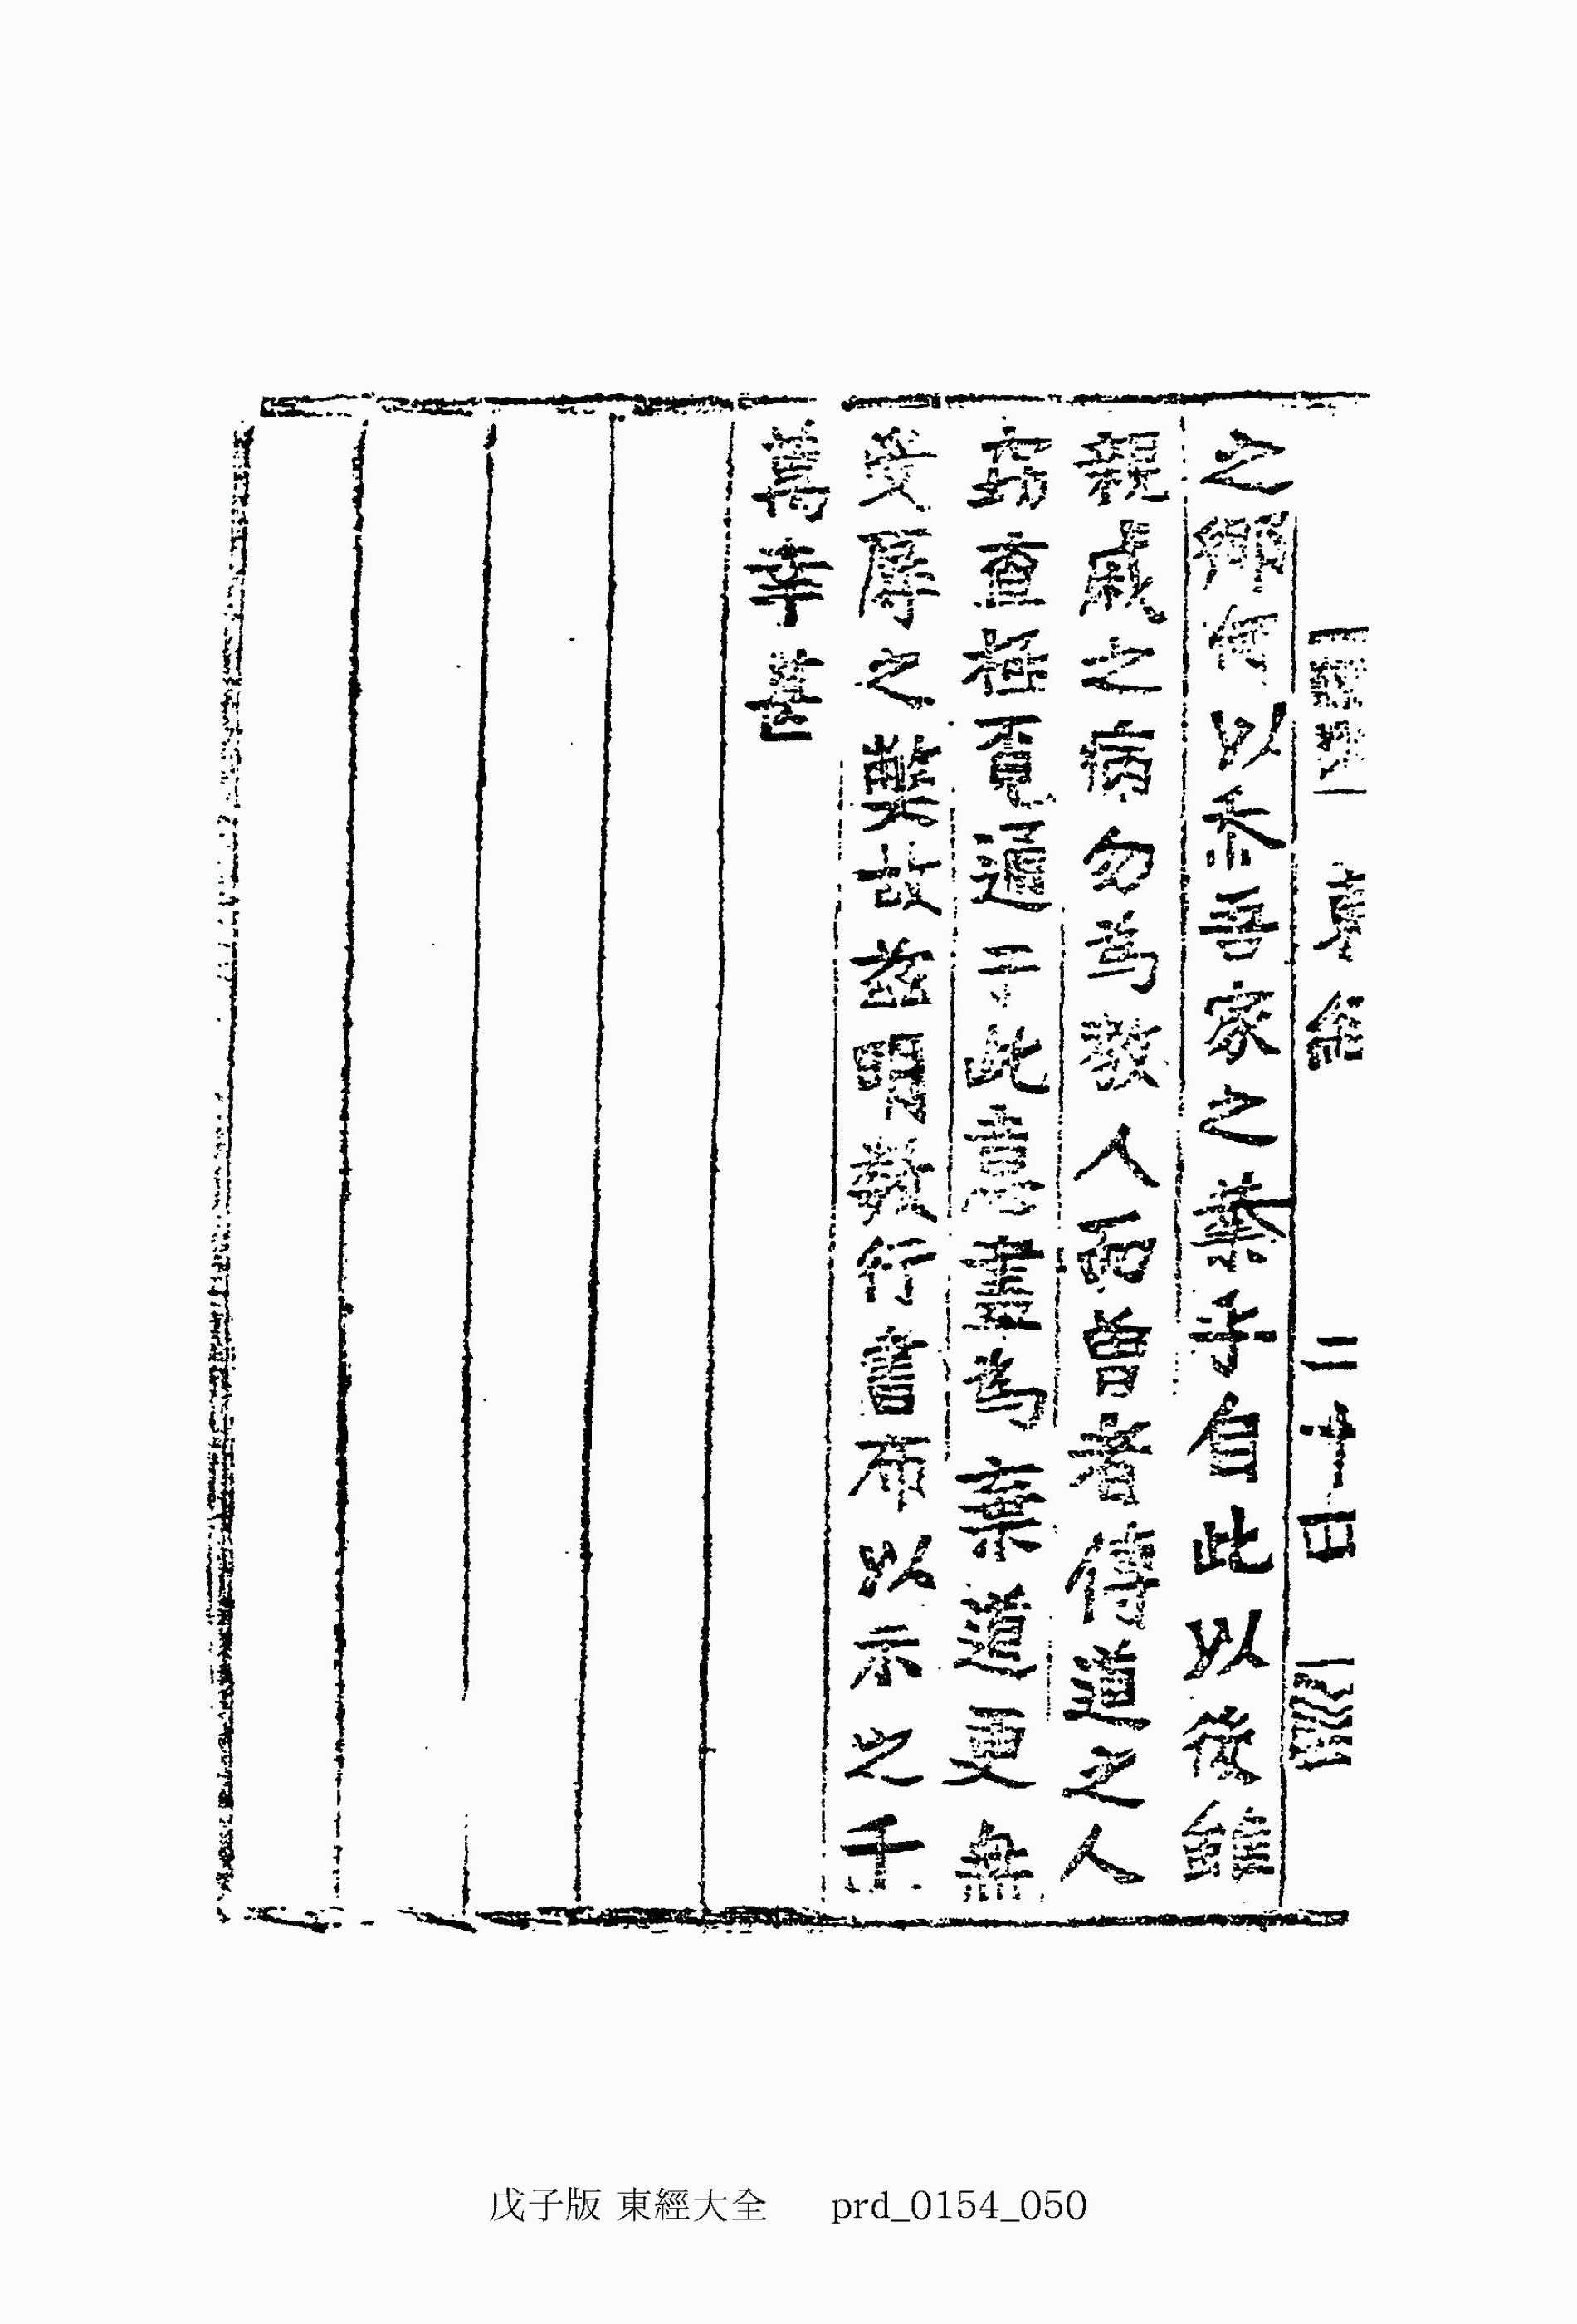 東經 二十四
之鄉何以忝吾家之業乎自此以後雖
親戚之病勿為教人而曾者傳道之人
窃查極覓通于此意盡為棄道更無
受辱之弊故茲明數行書布以示之千
萬幸甚
戊子版 東經大全 prd_0154_050